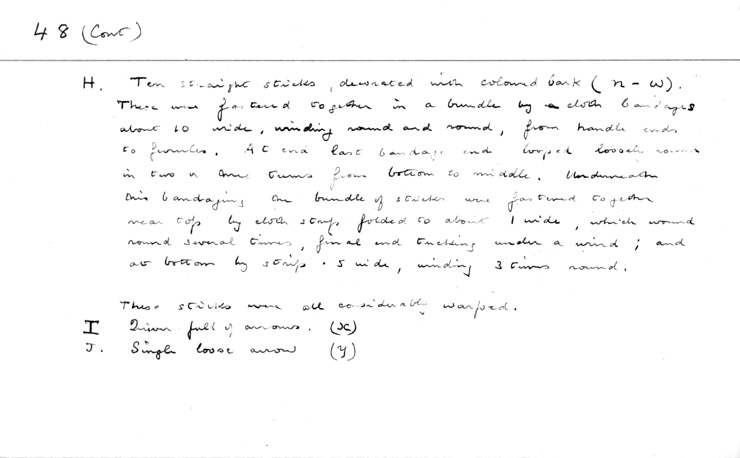 48 (Cont)
H. Ten straight sticks, decorated with coloured bark (n - w).
These were fastened together in a bundle by cloth bandages
about 10 wide, winding round and round, from handle ends
to ferrules. At end last bandage end looped loosely round
in two or three turns from bottom to middle. Underneath
this bandaging the bundle of sticks were fastened together
near top by cloth strip folded to about 1 wide, which wound
round several times, final end tucking under a wind; and
at bottom by strip .5 wide, winding 3 times round.
These sticks were all considerably warped.
I Quiver full of arrows. (x)
J. Single loose arrow (y)